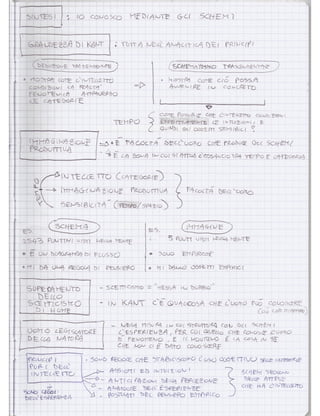 SINTESI : IO CONOSCO MEDIANTE GLI SCHEMI
GRANDEZZA DI KANT : TUTTA NELL'ANALITICA DEI PRINCIPI
DEDUZIONE TRASCENDENTALE
SCHEMATISMO TRASCENDENTALE
• MOSTRA COME L'INTELLETTO
CONDIZIONI LA REALTÀ
FENOMENICA
LE CATEGORIE
• MOSTRA COME CIÒ POSSA
AVVENIRE IN CONCRETO
TEMPO
COME POSSO L'INTELLETTO CONDIZIONARE
LE INTUIZIONI E
QUINDI GLI OGGETTI SENSIBILI ?
IMMAGINAZIONE
PRODUTTIVA
• È FACOLTÀ DELL'UOMO CHE PRODUCE GLI SCHEMI
• È LA ZONA IN CUI SI ATTUA L'ACCORDO TRA TEMPO E CATEGORIA
TEMPO
INTELLETTO (CATEGORIE)
IMMAGINAZIONE PRODUTTIVA
SENSIBILITÀ (TEMPO/SPAZIO)
FACOLTÀ DELL'UOMO
SCHEMA
IMMAGINE
ES.
2543 PUNTINI VISTI NELLA MENTE
ES.
5 PUNTI VISTI NELLA MENTE
• È UN DIAGRAMMA DI FLUSSO
• SONO EMPIRICHE
• MI DA UNA REGOLA DI PENSIERO
• MI DANNO OGGETTI EMPIRICI
SUPERAMENTO
DELLO
SCETTICISMO
DI HUME
- SCETTICISMO = "MESSA IN DUBBIO"
- IN KANT C'È QUALCOSA CHE L'UOMO PUÒ CONOSCERE
UOMO LEGISLATORE
DELLA NATURA
- NELLA MISURA IN CUI STRUTTURA CON GLI SCHEMI
L'ESPERIENZA, PER CUI QUELLO CHE CONOSCE L'UOMO
È FENOMENO, E IL NOUMENO È LA COSA IN SÉ
CHE NON CI È DATO CONOSCERE
PRINCIPI
PURI DELL'
INTELLETTO
- SONO REGOLE CHE STABILISCONO L'USO OGGETTIVO DELLE CATEGORIE
ASSIOMI DELL'INTUIZIONE
ANTICIPAZIONI DELLA PERCEZIONE
ANALOGIE DELL'ESPERIENZA
POSTULATI DEL PENSIERO EMPIRICO
DELLE
CHE HA L'INTELLETTO
SONO LEGGI
DELL'ESPERIENZA